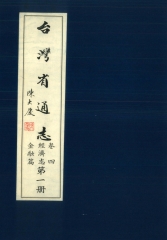 台灣省通志
陳大慶
卷四
經濟志
金融篇
第一册